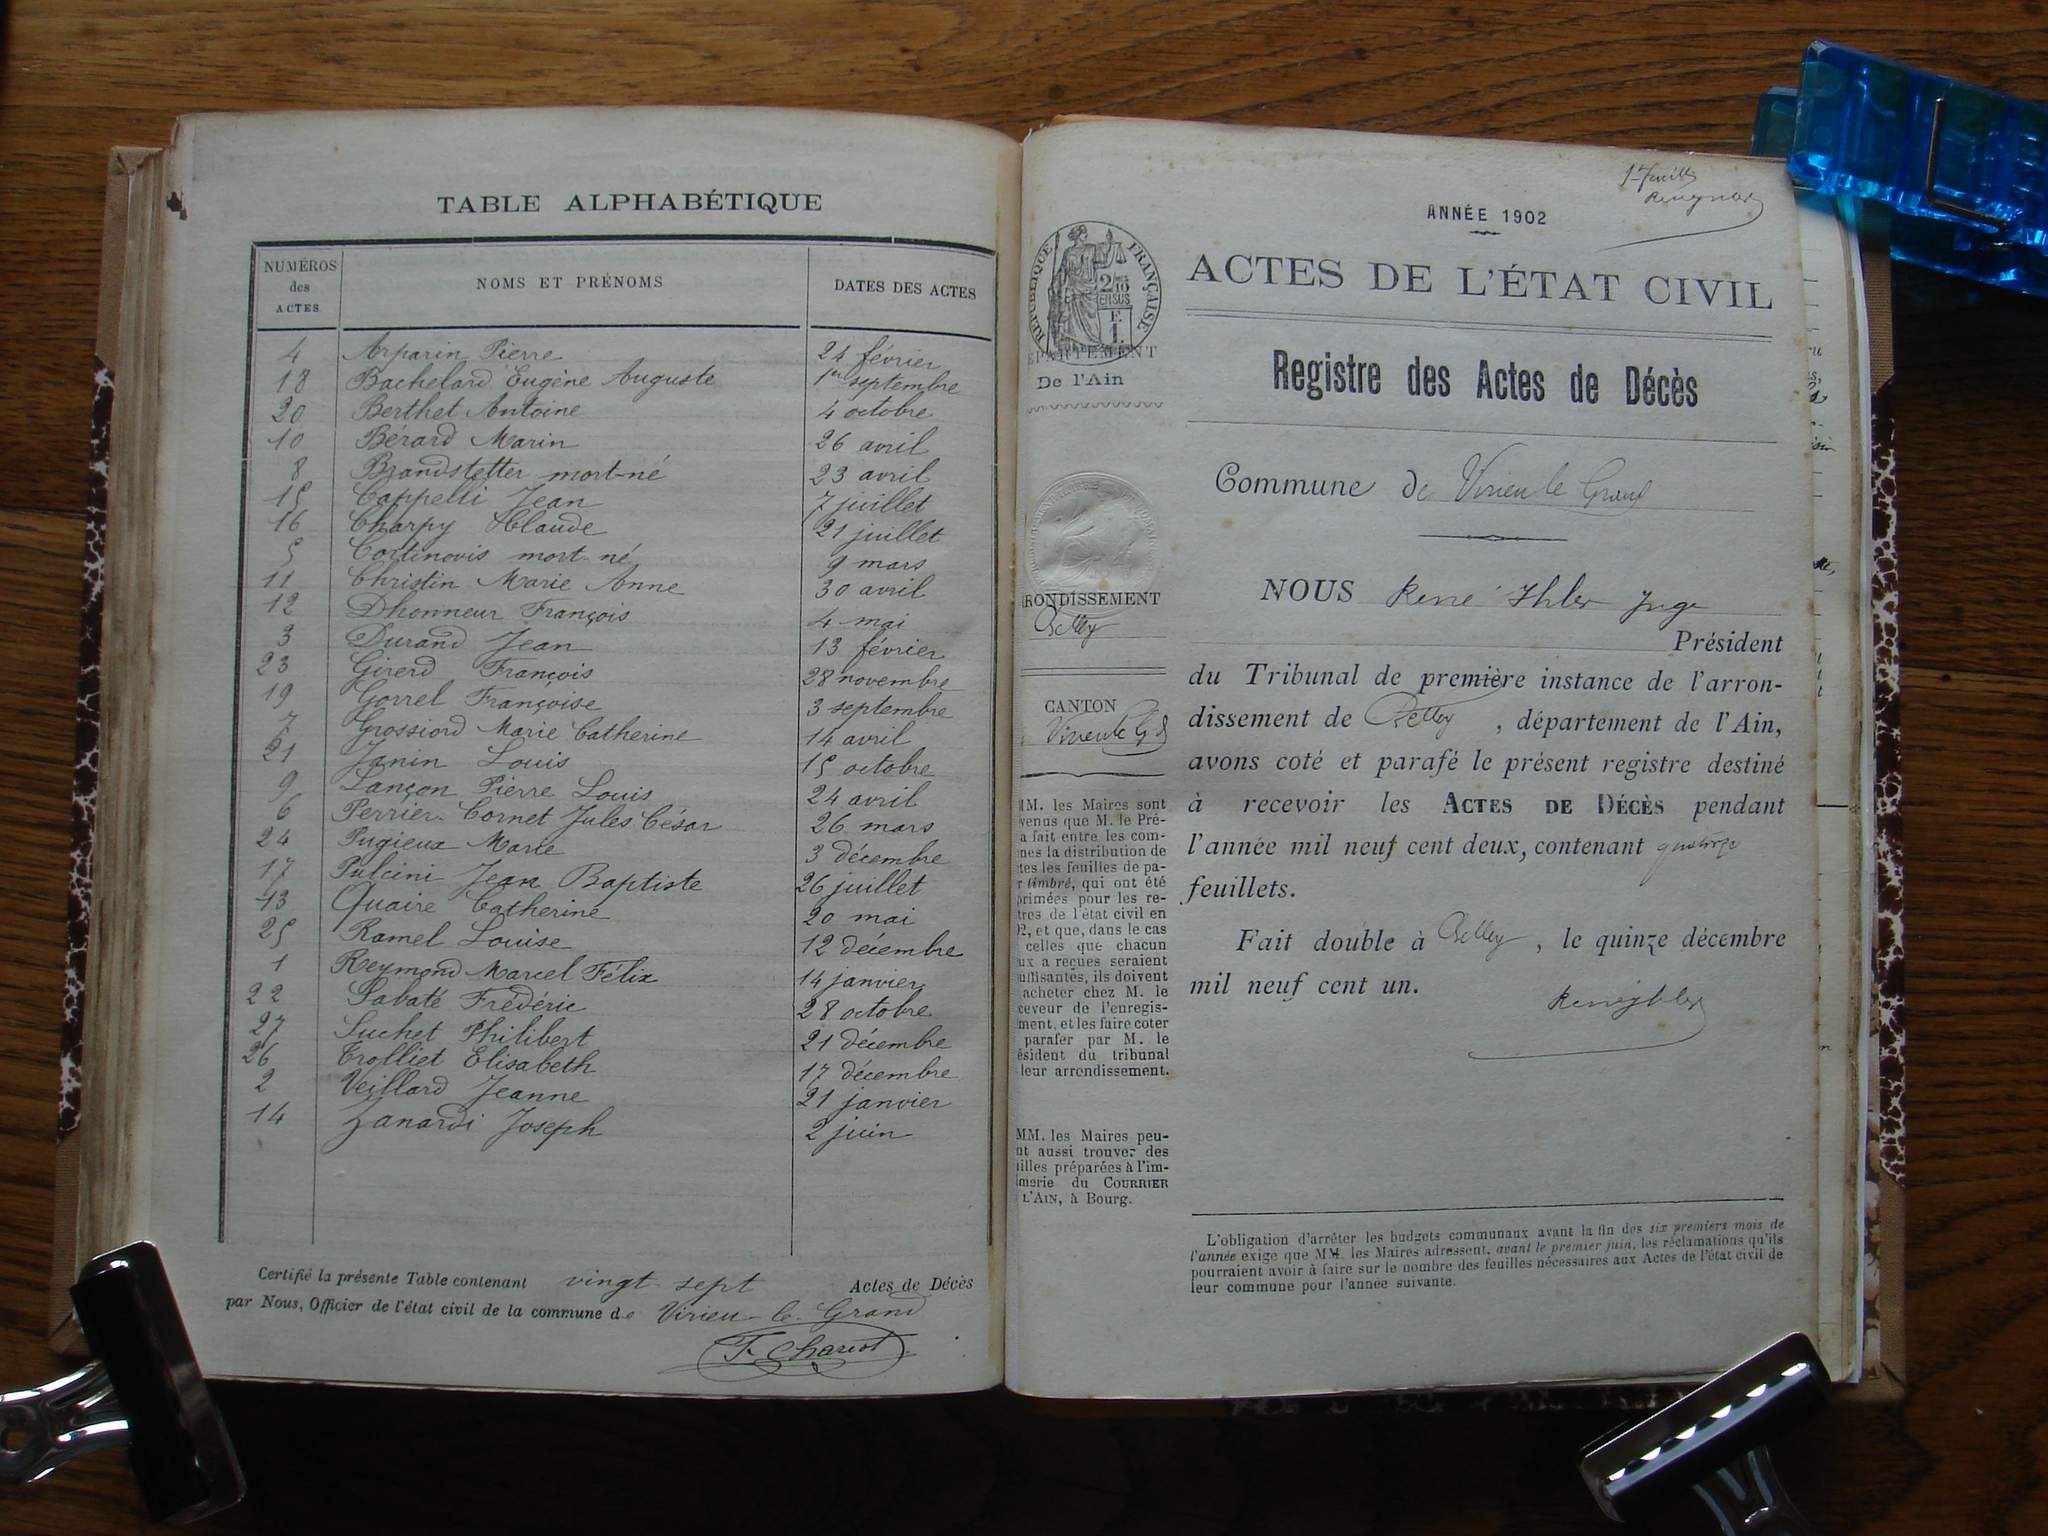 TABLE ALPHABÉTIQUE
NUMÉROS des ACTES NOMS ET PRÉNOMS DATES DES ACTES
4 Arparin Pierre 24 février
18 Bachelard Eugène Auguste 1er septembre
20 Berthet Antoine 4 octobre
10 Bérard Marin 26 avril
8 Brandstetter mort-né 23 avril
15 Cappelli Jean 7 juillet
16 Charpy Claude 21 juillet
5 Cortinovis mort-né 9 mars
11 Christin Marie Anne 30 avril
12 Dhonneur François 4 mai
3 Durand Jean 13 février
23 Girerd François 28 novembre
19 Gorrel Françoise 3 septembre
7 Grossiord Marie Catherine 14 avril
21 Janin Louis 15 octobre
9 Lançon Pierre Louis 24 avril
6 Perrier-Cornet Jules César 26 mars
24 Pugieux Marie 3 décembre
17 Pulcini Jean Baptiste 26 juillet
13 Quaire Catherine 20 mai
25 Ramel Louise 12 décembre
1 Reymond Marcel Félix 14 janvier
22 Sabaté Frédéric 28 octobre
27 Suchet Philibert 21 décembre
26 Trolliet Elisabeth 17 décembre
2 Veillard Jeanne 21 janvier
14 Zanardi Joseph 2 juin
Certifié la présente Table contenant vingt-sept Actes de Décès
par Nous, Officier de l'état civil de la commune de Virieu-le-Grand
F. Chariot
ANNÉE 1902
RÉPUBLIQUE FRANÇAISE
2/10 EN SUS
F. 1.
ACTES DE L'ÉTAT CIVIL
ÉPARTEMENT
De l'Ain
Registre des Actes de Décès
Commune de Virieu le Grand
RONDISSEMENT
Belley
CANTON
Virieu le Gd
NOUS René Ihler Juge
Président
du Tribunal de première instance de l'arron-
dissement de Belley, département de l'Ain,
avons coté et parafé le présent registre destiné
à recevoir les ACTES DE DÉCÈS pendant
l'année mil neuf cent deux, contenant quatorze
feuillets.
Fait double à Belley, le quinze décembre
mil neuf cent un.
René Ihler
MM. les Maires sont
venus que M. le Pré-
a fait entre les com-
nes la distribution de
tes les feuilles de pa-
r timbré, qui ont été
primées pour les re-
tres de l'état civil en
02, et que, dans le cas
celles que chacun
ux a reçues seraient
uffisantes, ils doivent
acheter chez M. le
ceveur de l'enregis-
ment, et les faire coter
parafer par M. le
ésident du tribunal
leur arrondissement.
MM. les Maires peu-
nt aussi trouver des
illes préparées à l'im-
imerie du COURRIER
L'AIN, à Bourg.
L'obligation d'arrêter les budgets communaux avant la fin des six premiers mois de
l'année exige que MM. les Maires adressent, avant le premier juin, les réclamations qu'ils
pourraient avoir à faire sur le nombre des feuilles nécessaires aux Actes de l'état civil de
leur commune pour l'année suivante.